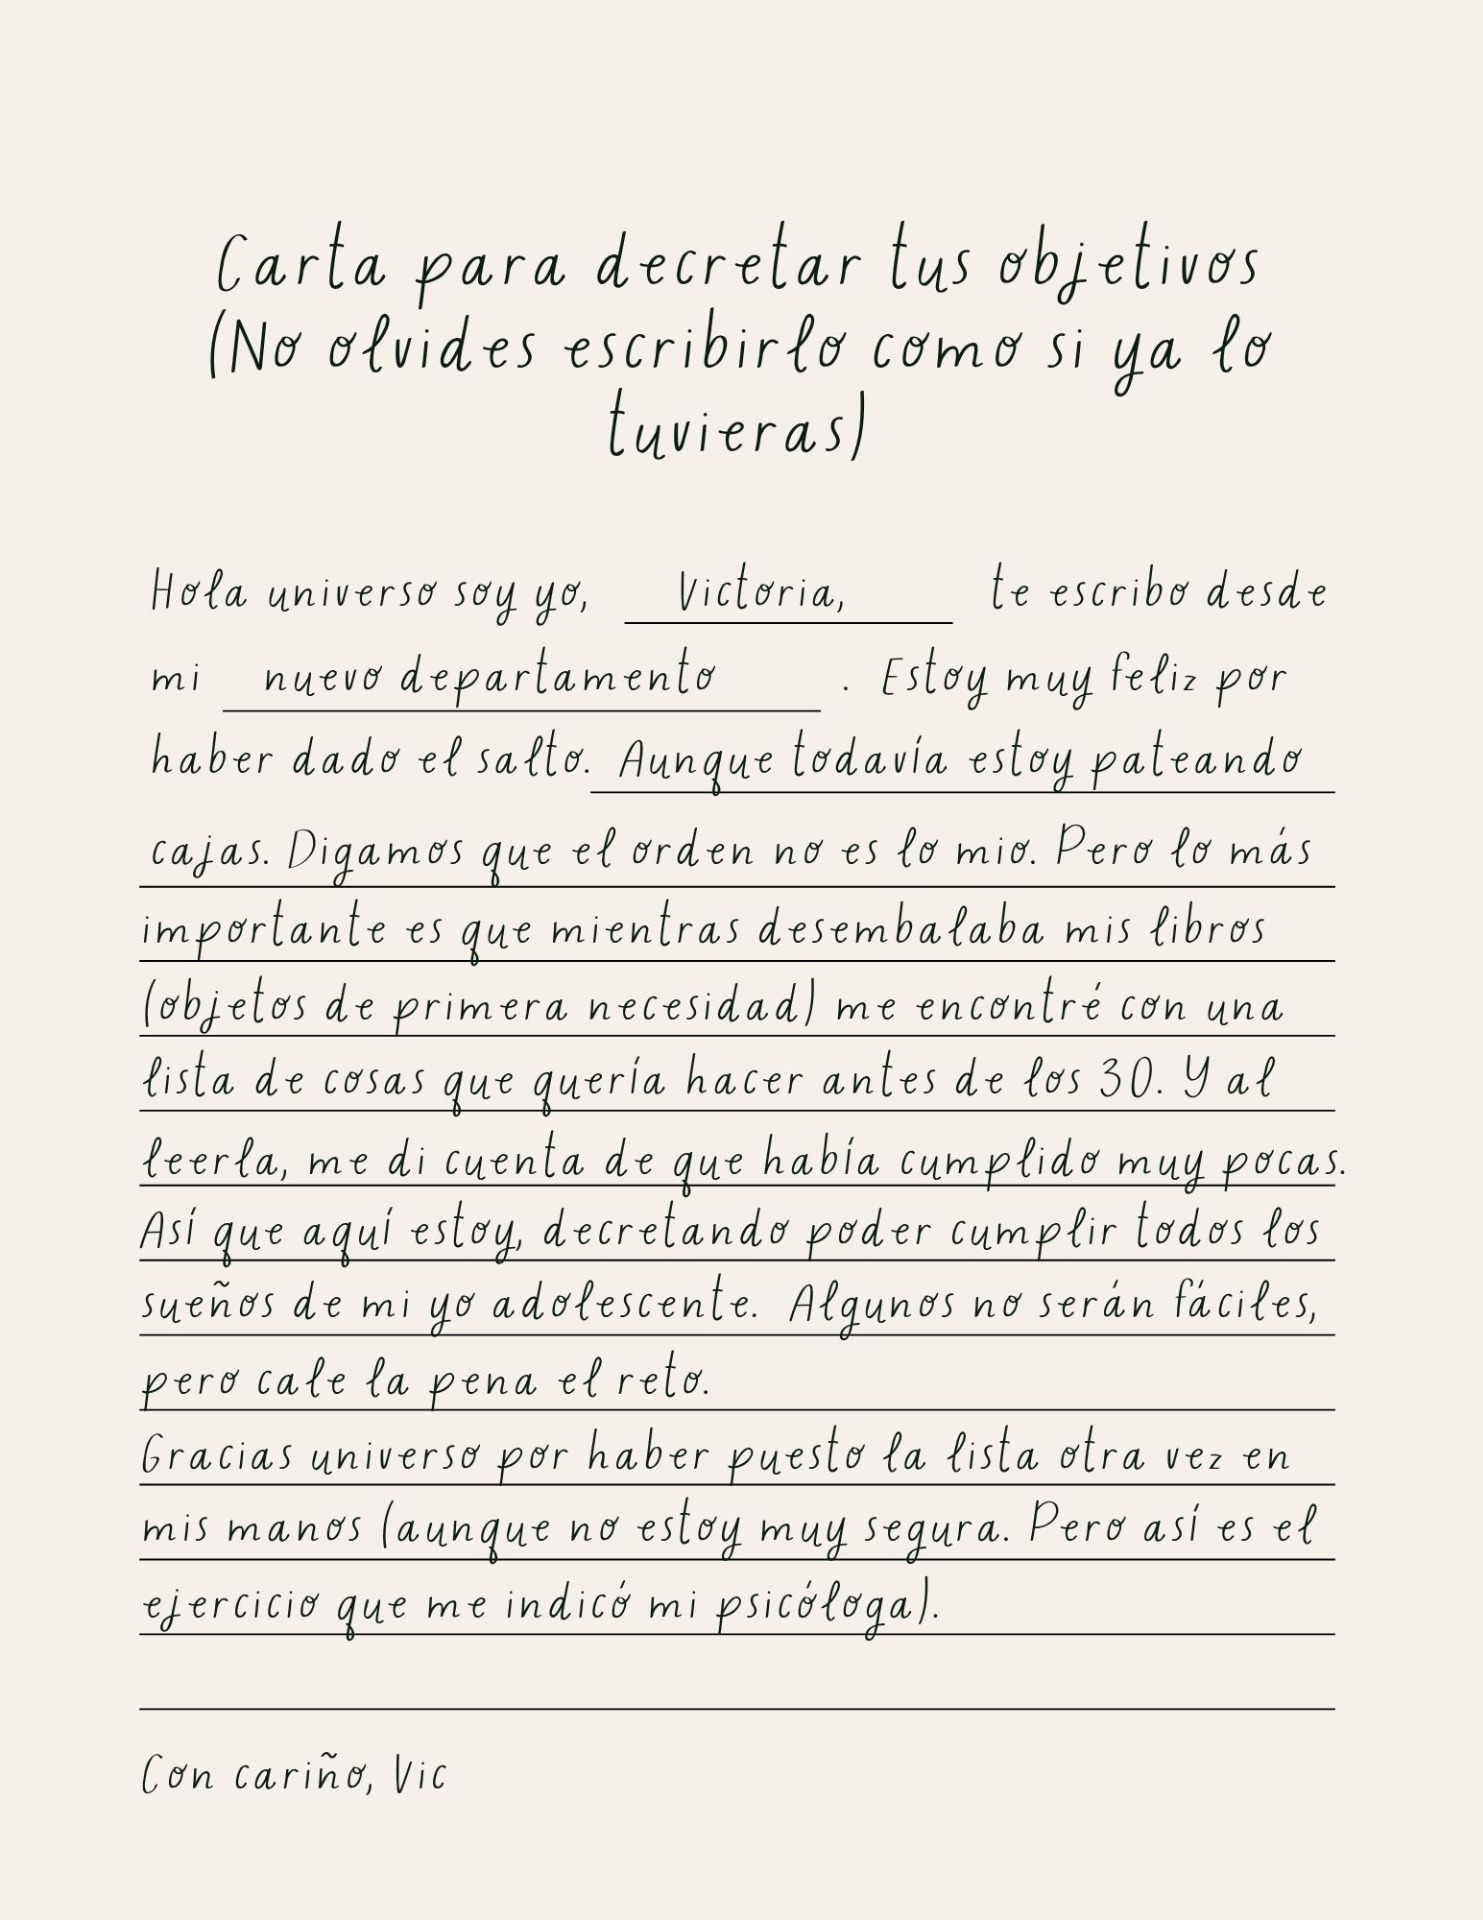 Carta para decretar tus objetivos
(No olvides escribirlo como si ya lo
tuvieras)
Hola universo soy yo, Victoria, te escribo desde
mi nuevo departamento . Estoy muy feliz por
haber dado el salto. Aunque todavía estoy pateando
cajas. Digamos que el orden no es lo mio. Pero lo más
importante es que mientras desembalaba mis libros
(objetos de primera necesidad) me encontré con una
lista de cosas que quería hacer antes de los 30. Y al
leerla, me di cuenta de que había cumplido muy pocas.
Así que aquí estoy, decretando poder cumplir todos los
sueños de mi yo adolescente. Algunos no serán fáciles,
pero cale la pena el reto.
Gracias universo por haber puesto la lista otra vez en
mis manos (aunque no estoy muy segura. Pero así es el
ejercicio que me indicó mi psicóloga).
Con cariño, Vic